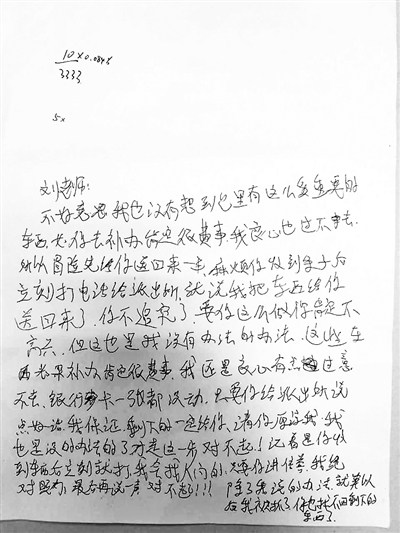 10×0.084
3333
5×
刘老师:
不好意思我也没有想到包里有这么多重要的
东西要你去补办肯定很费事我良心也过不去
所以冒险先给你送回来一半麻烦你发到东子后
立刻打电话给派出所就说我把东西给你
送回来了你不追究了要你这么做你肯定不
高兴但这也是我没有办法的办法这些东
西如果补办肯也很费事我还是良心有点过意
不去银行卡一张都没动只要你给派出所说
点好话我保证剩下的一定给你请你原谅我我
也是没的办法的了才走这一步对不起!记着是你收
到东西后立刻就打我会找人问的只要你讲信誉我绝
对照办最后再说一声对不起!!!除了我说的办法就算以
后我被抓了你也找不回剩下的
东西了